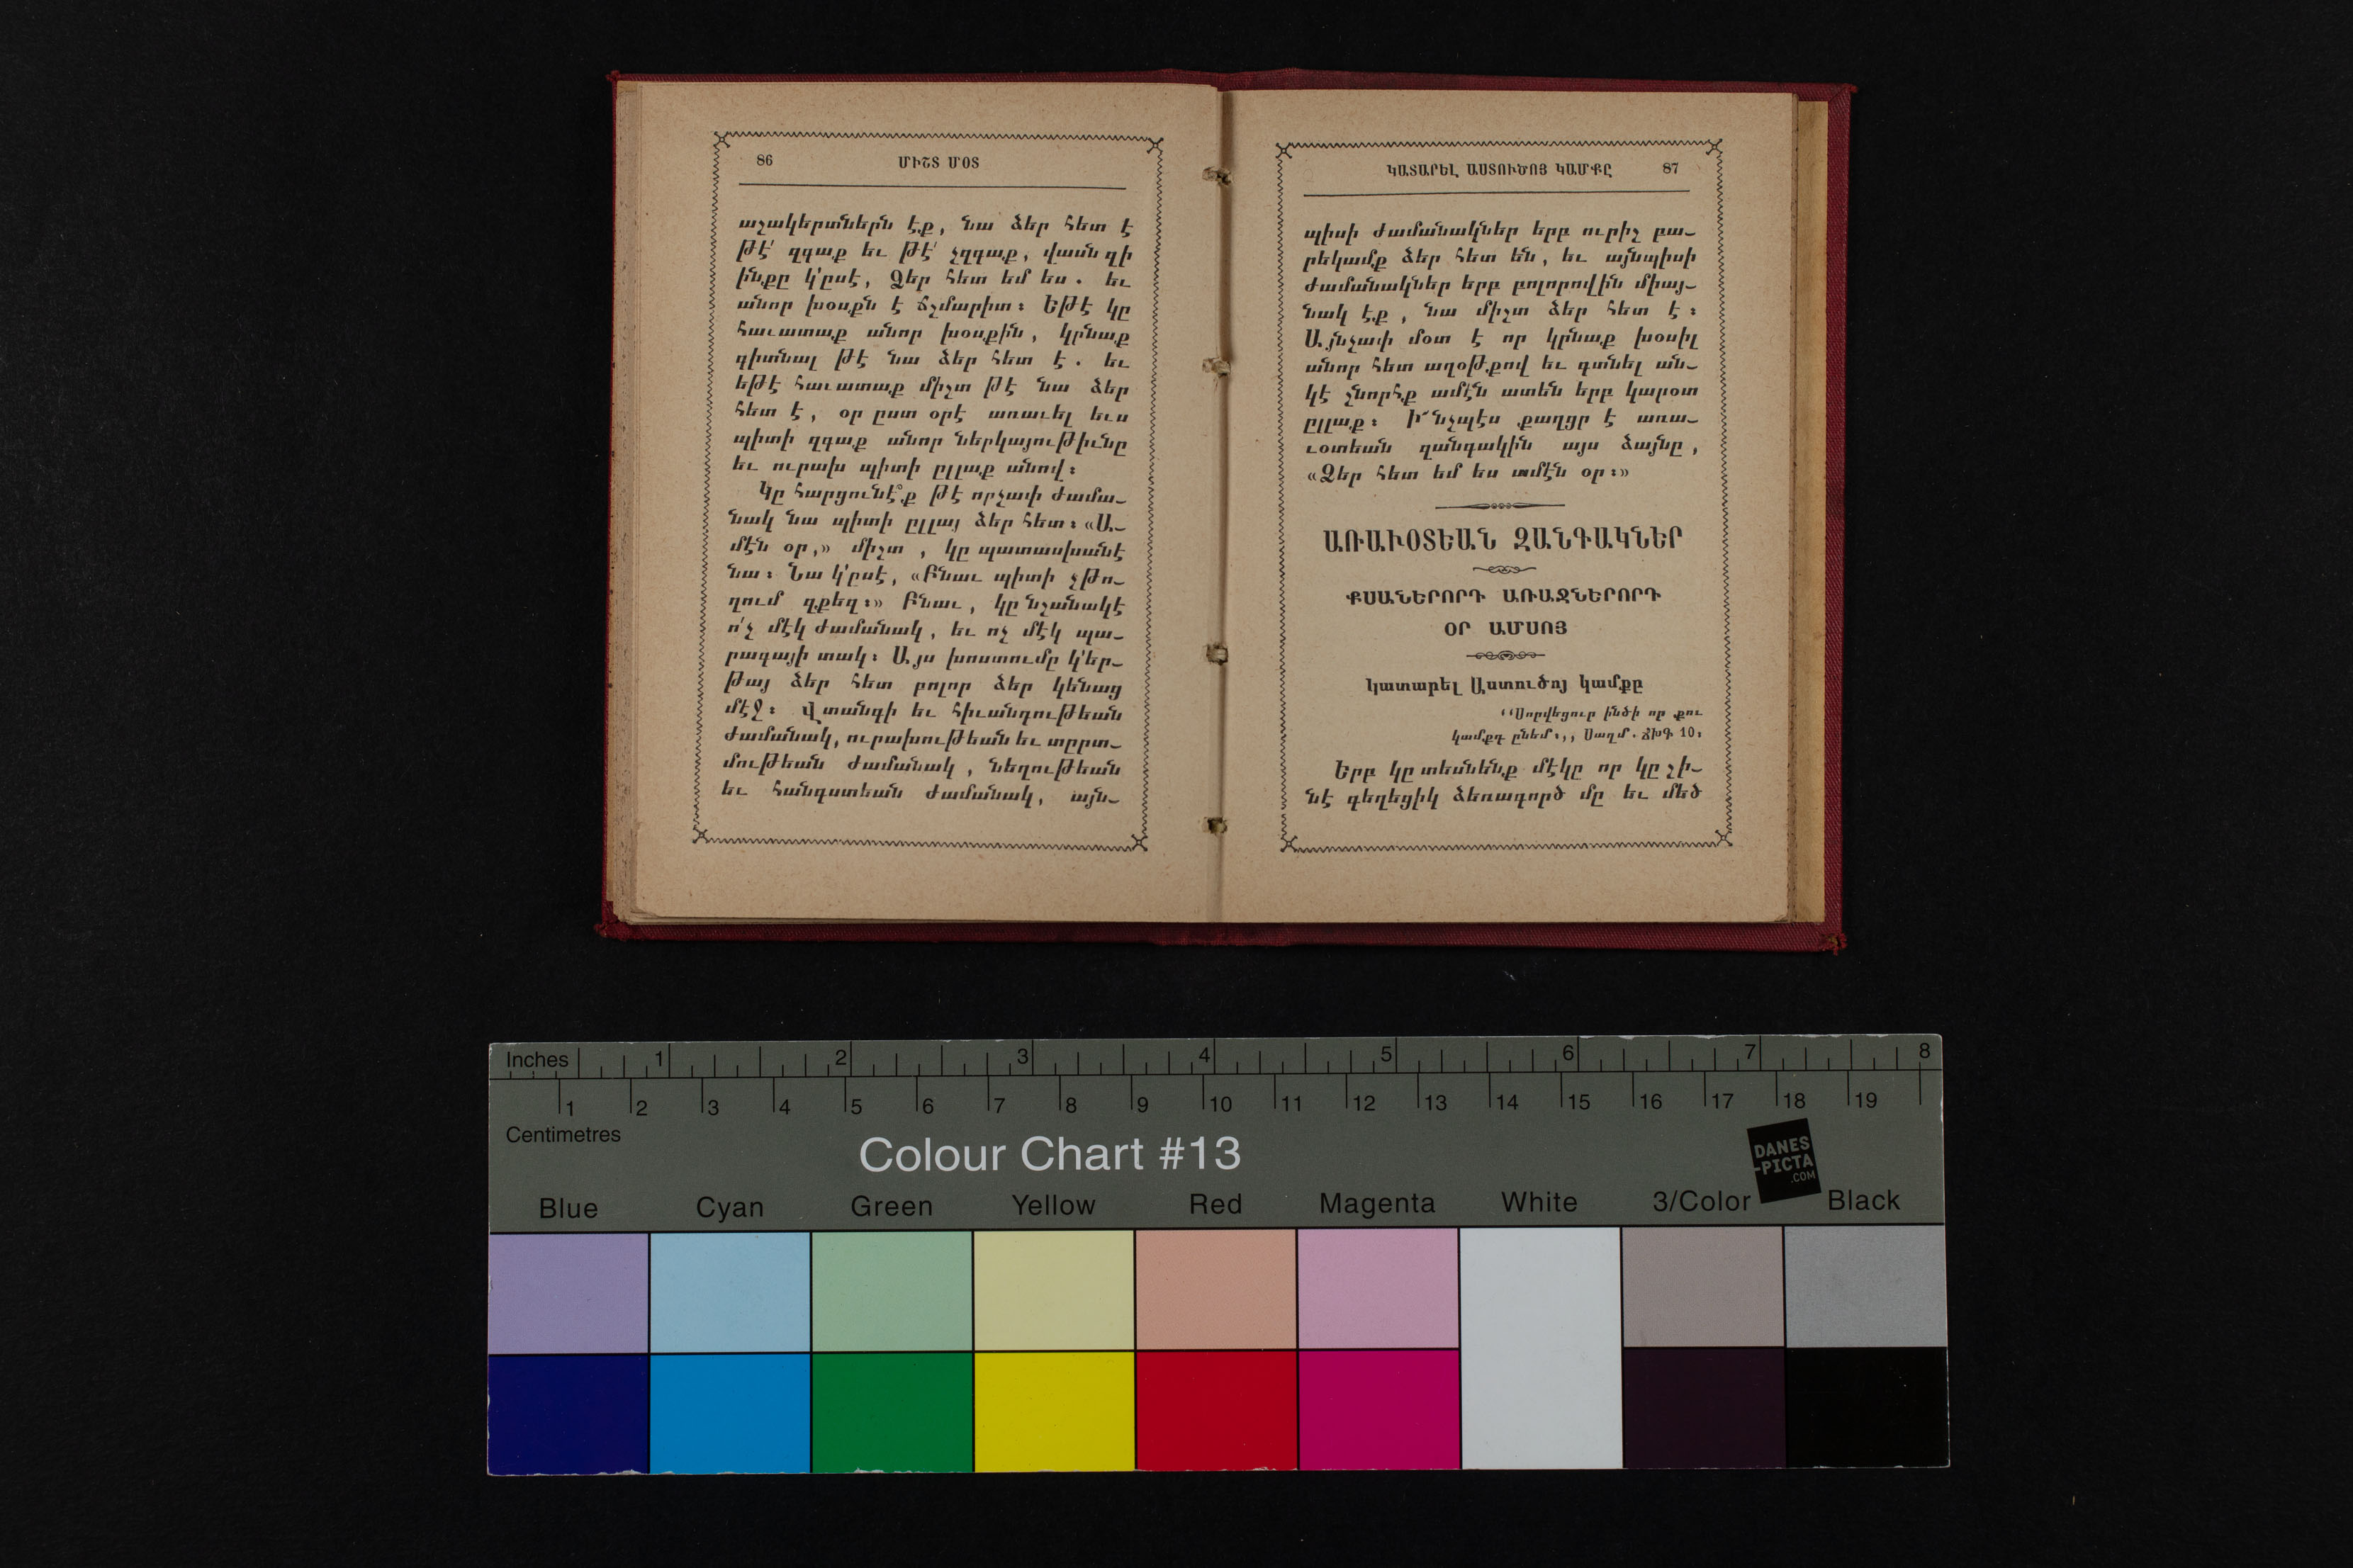 86 ՄԻՇՏ ՄՕՏ
աշակերտներն էք, նա ձեր հետ է
թէ՛ զգաք եւ թէ՛ չզգաք, վասն զի
ինքը կ՚ըսէ, Ձեր հետ եմ ես. եւ
անոր խօսքն է ճշմարիտ։ Եթէ կը
հաւատաք անոր խօսքին, կրնաք
գիտնալ թէ նա ձեր հետ է. եւ
եթէ հաւատաք միշտ թէ նա ձեր
հետ է, օր ըստ օրէ առաւել եւս
պիտի զգաք անոր ներկայութիւնը
եւ ուրախ պիտի ըլլաք անով։
Կը հարցունէ՞ք թէ որչափ ժամա-
նակ նա պիտի ըլլայ ձեր հետ։ «Ա-
մէն օր,» միշտ, կը պատասխանէ
նա։ Նա կ՚ըսէ, «Բնաւ պիտի չթո-
ղում զքեզ։» Բնաւ, կը նշանակէ
ո՛չ մէկ ժամանակ, եւ ոչ մէկ պա-
րագայի տակ։ Այս խոստումը կ՚եր-
թայ ձեր հետ բոլոր ձեր կենաց
մէջ։ Վտանգի եւ հիւանդութեան
ժամանակ, ուրախութեան եւ տըրտ-
մութեան ժամանակ, նեղութեան
եւ հանգստեան ժամանակ, այն-
ԿԱՏԱՐԵԼ ԱՍՏՈՒԾՈՅ ԿԱՄՔԸ 87
պիսի ժամանակներ երբ ուրիշ բա-
րեկամք ձեր հետ են, եւ այնպիսի
ժամանակներ երբ բոլորովին միայ-
նակ էք, նա միշտ ձեր հետ է։
Այնչափ մօտ է որ կրնաք խօսիլ
անոր հետ աղօթքով եւ գտնել ան-
կէ շնորհք ամէն ատեն երբ կարօտ
ըլլաք։ Ի՜նչպէս քաղցր է առա-
ւօտեան զանգակին այս ձայնը,
«Ձեր հետ եմ ես ամէն օր։»
ԱՌԱՒՕՏԵԱՆ ԶԱՆԳԱԿՆԵՐ
ՔՍԱՆԵՐՈՐԴ ԱՌԱՋՆԵՐՈՐԴ
ՕՐ ԱՄՍՈՅ
Կատարել Աստուծոյ կամքը
‘‘Սորվեցուր ինծի որ քու
կամքդ ընեմ։,, Սաղմ. ՃԽԳ 10։
Երբ կը տեսնենք մէկը որ կը շի-
նէ գեղեցիկ ձեռագործ մը եւ մեծ
Inches 1 2 3 4 5 6 7 8
1 2 3 4 5 6 7 8 9 10 11 12 13 14 15 16 17 18 19
Centimetres
Colour Chart #13
DANES
-PICTA
.COM
Blue Cyan Green Yellow Red Magenta White 3/Color Black